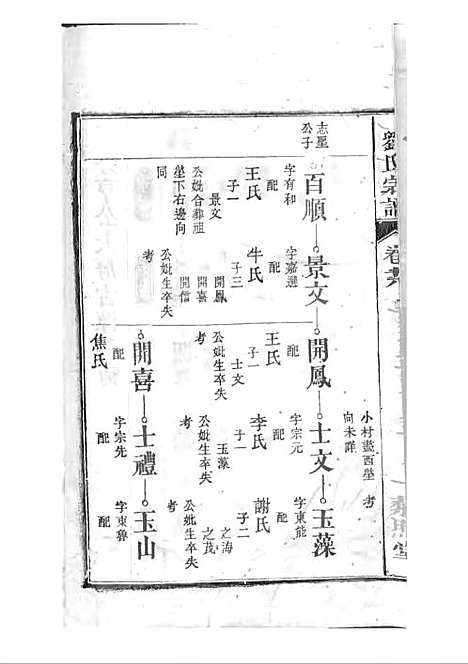 劉氏宗譜
卷
小村盡西塋
向未詳
考
志星
公子
百順
字有和
配
王氏
子一
景文
公妣合葬祖
塋下右邊向
同
景文
字嘉選
配
牛氏
子三
開鳳
開喜
開信
公妣生卒失
考
開鳳
配
王氏
子一
士文
公妣生卒失
考
士文
字宗元
配
李氏
子一
玉藻
公妣生卒失
考
玉藻
字東能
配
謝氏
子二
之海
之茂
公妣生卒失
考
開喜
配
焦氏
士禮
字宗先
配
玉山
字東魯
配